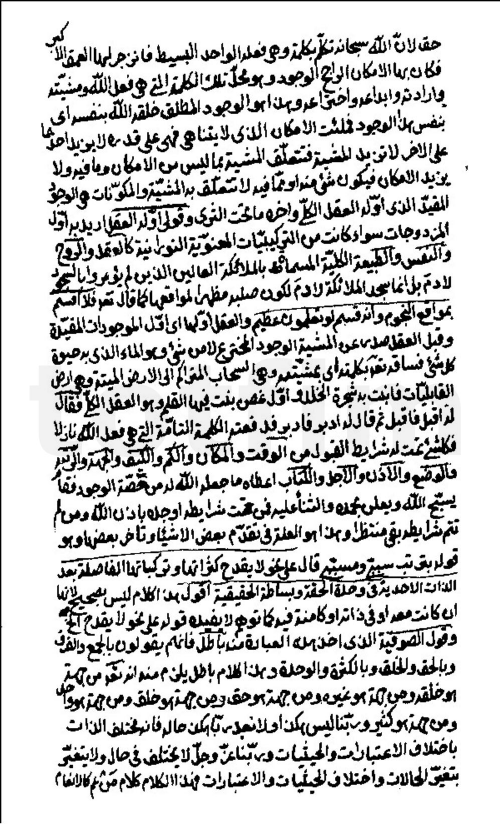 حقه لان الله سبحانه تكلم بكلمة وهي فعله الواحد البسيط فانزجر لها العمق الاكبر
فكان بها الامكان الراجح الوجود وهو محل تلك الكلمة التي هي فعل الله ومشيته
وارادته وابداعه واختراعه وهذا هو الوجود المطلق خلقه الله بنفسه اي
بنفس هذا الوجود فملئت الامكان الذي لا يتناهى فهي على قدره لا يزيد احدهما
على الاخر لا تزيد المشية فتتعلق المشية بما ليس من الامكان وما فيه ولا
يزيد الامكان فيكون شئ منه او مما فيه لا تتعلق به المشية والمكونات هي الوجود
المقيد الذي اوله العقل الكلي واخره ما تحت الثرى وقولي اوله العقل اريد به اول
المزدوجات سواء كانت من التركيبيات المعنوية النورانية كالعقل والروح
والنفس والطبيعة الكلية المسماة بالملائكة العالين الذين لم يؤمروا بالسجود
لادم بل انما سجد الملائكة لادم لكون صلبه مظهرا لمواقعها كما قال تعم فلا اقسم
بمواقع النجوم وانه لقسم لو تعلمون عظيم والعقل اولها اي اول الموجودات المقيدة
وقبل العقل صدر عن المشية الوجود المخترع لا من شئ وهو الماء الذي به حيوة
كل شئ فساقه تعم بكلمته اي بمشيته وهي السحاب المتراكم الى الارض الميتة وهي ارض
القابليات فانبت به شجرة الخلد فاول غصن نبت فيها القلم وهو العقل الكلي فقال
له اقبل فاقبل ثم قال له ادبر فادبر فدفعته الكلمة التامة التي هي فعل الله نازلا
فكل شئ تمت له شرايط القبول من الوقت والمكان والكم والكيف والجهة والرتبة
والوضع والاذن والاجل والكتاب اعطاه ما جعله الله له من حصة الوجود فقام
يسبح الله ويعلن بحمده والثناء عليه فمن تمت شرايطه اوجده باذن الله ومن لم
تتم شرايطه بقي منتظرا وهذا هو العلة في تقدم بعض الاشياء وتاخر بعضها وهو
قوله بترتب سببي ومسببي قال على نحو لا يقدح كثراتها وتركيباتها الفاصلة بعد
الذات الاحدية في وحدته الحقة وبساطته الحقيقية اقول هذا الكلام ليس بصحيح لانها
ان كانت معه او في ذاته او كامنة فيه كما توهم لا يفيده قوله على نحو لا يقدح الخ
وقول الصوفية الذي اخذ هذه العبارة منه باطل فانهم يقولون بالجمع والفرق
وبالحق والخلق وبالكثرة والوحدة وهذا الكلام باطل يلزم منه انه تعم من جهة
هو خلقه ومن جهة هو غيره ومن جهة هو حق ومن جهة هو خلق ومن جهة هو واحد
ومن جهة هو كثير وربنا ليس هكذا ولا نعبد ربا هكذا حاله فانه تختلف الذات
باختلاف الاعتبارات والحيثيات وربنا عز وجل لا يختلف في حال ولا يتغير
بتغير الحالات واختلاف الحيثيات والاعتبارات فهذا الكلام كلام من هم كالانعام